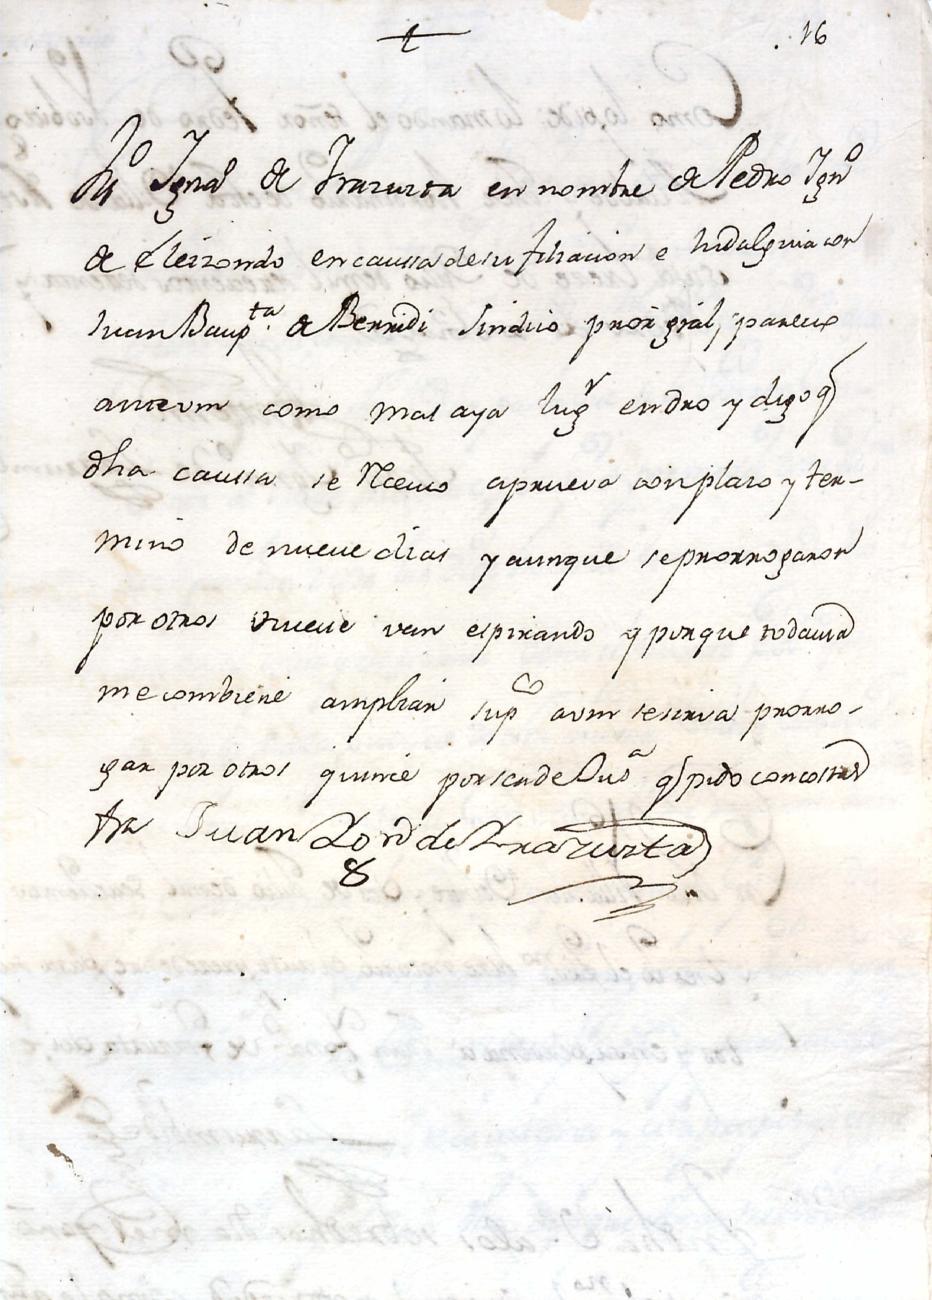 16
Jn° Ygna° de Yrazusta en nombre de Pedro Ygn°
de Eleizondo en caussa de su filiacion e hidalguia con
Juan Baup.ta de Berridi Sindico pror gral, parezco
ante vm como mas aya lugr en dro y digo q
dha caussa se Recivio aprueva con plazo y ter-
mino de nueve dias y aunque se prorrogaron
por otros nueve van espirando y porque todavia
me combiene ampliar supco avm se sirva prorro-
gar por otros quince por ser de Jusa q pido con costas
Juan Ygnº de Yrazusta